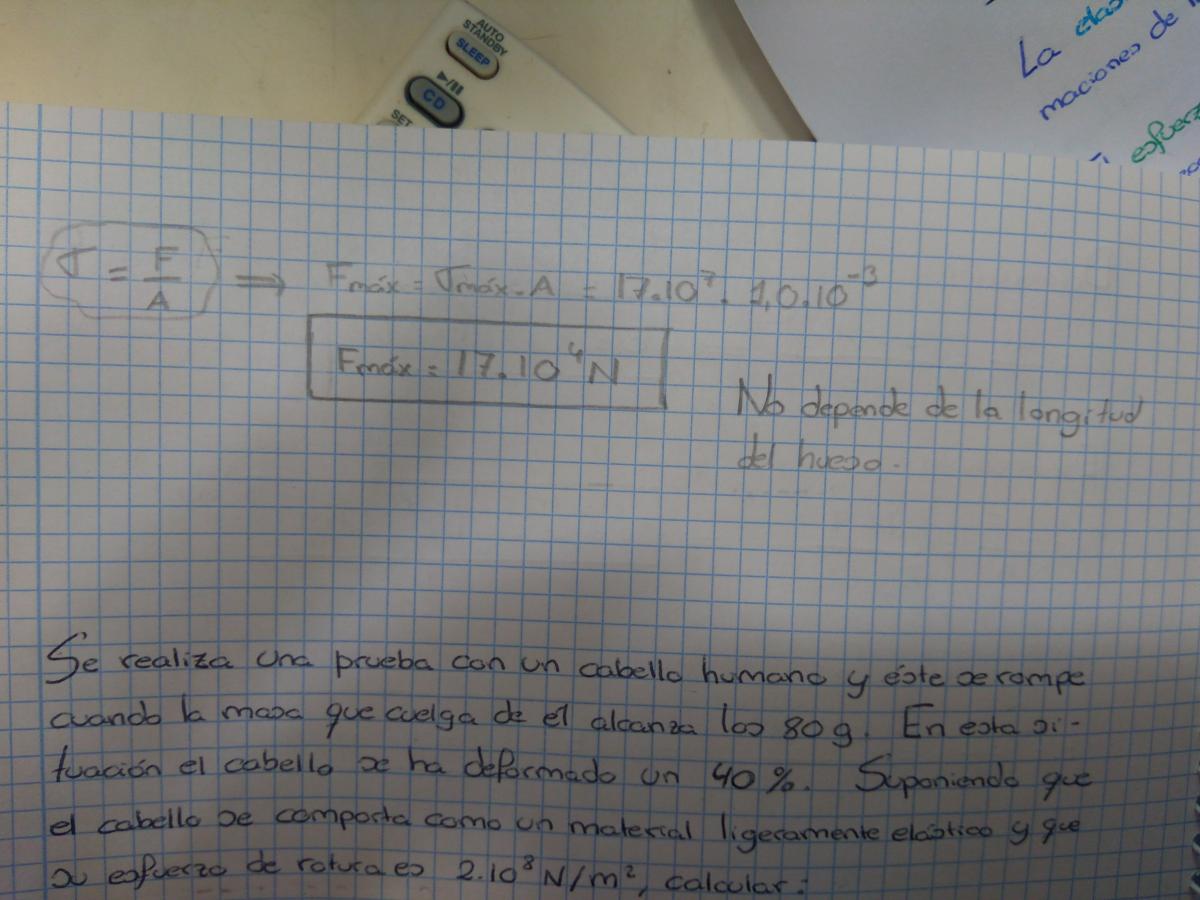 AUTO
STANDBY
SLEEP
▶/II
CD
SET
La
maciones de
esfuerz
σ = F/A ⇒ Fmáx = σmáx . A = 17.10⁷ . 1,0.10⁻³
Fmáx = 17.10⁴ N
No depende de la longitud
del hueso.
Se realiza una prueba con un cabello humano y éste se rompe
cuando la masa que cuelga de el alcanza los 80 g. En esta si-
tuación el cabello se ha deformado un 40 %. Suponiendo que
el cabello se comporta como un material ligeramente elástico y que
su esfuerzo de rotura es 2.10⁸ N/m², calcular: